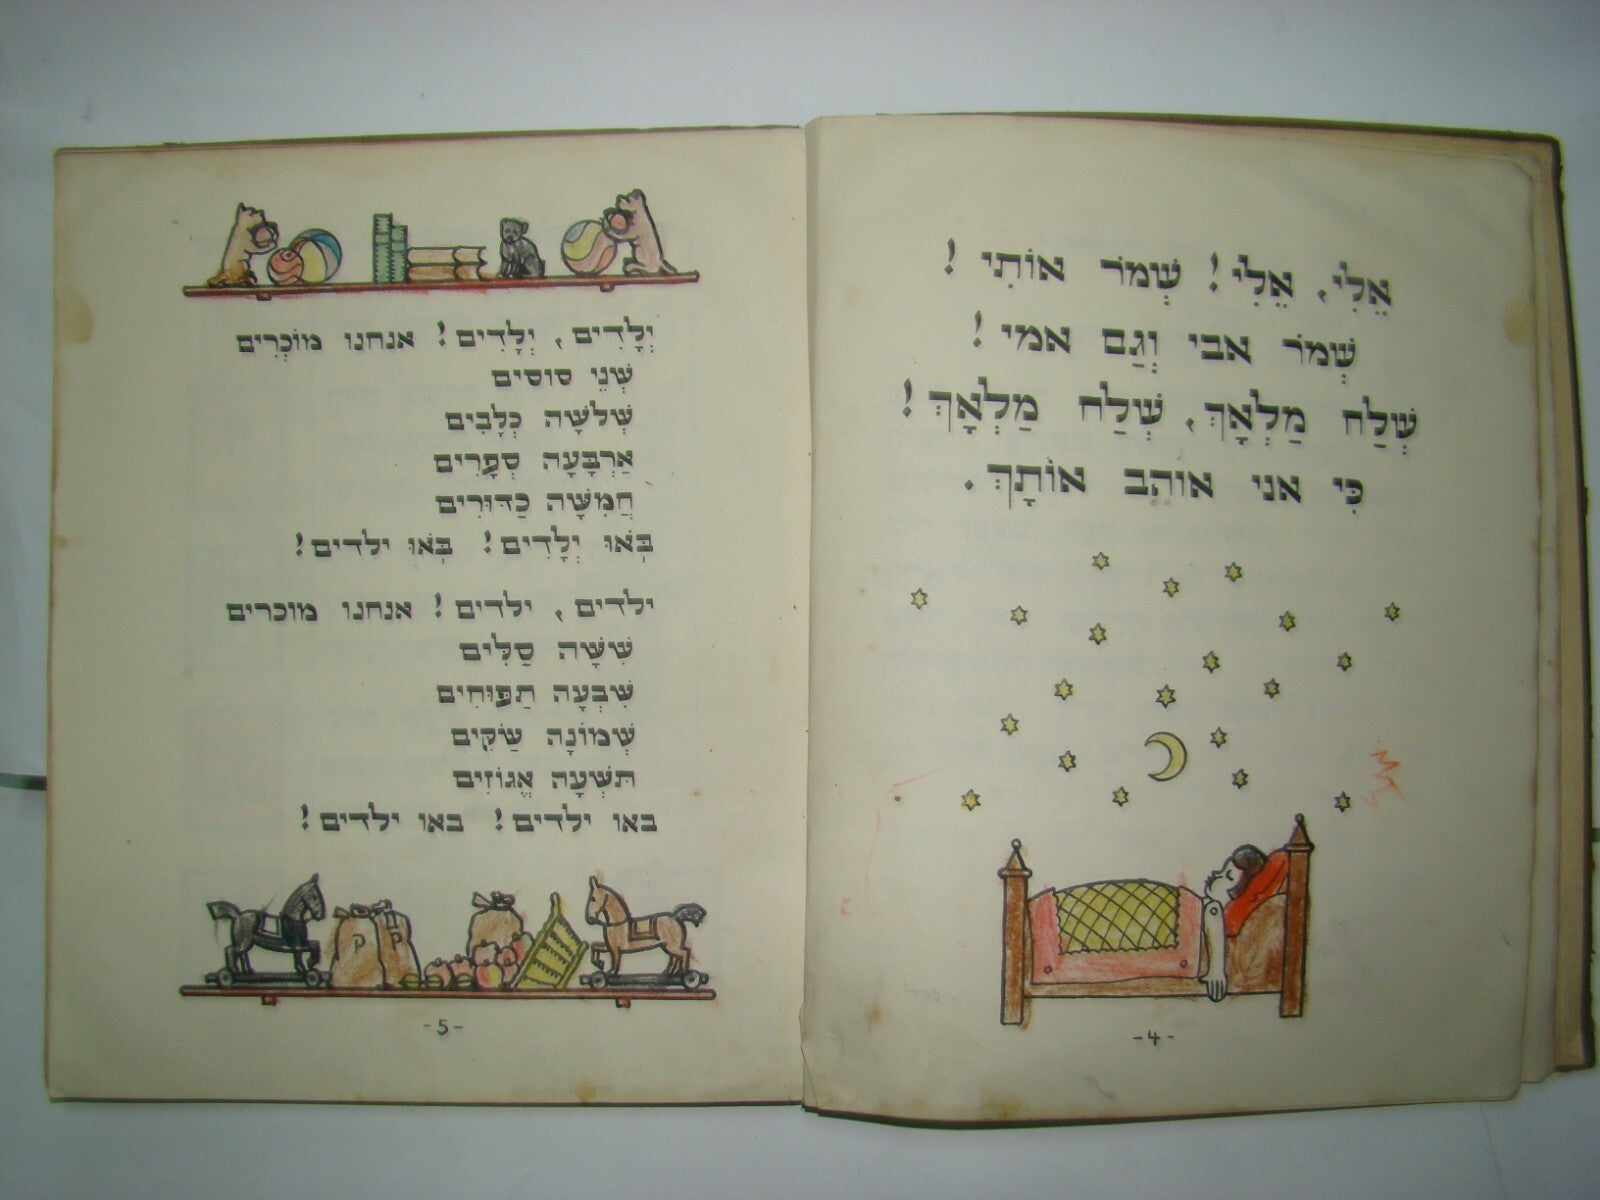 אֱלִי, אֱלִי! שְׁמֹר אוֹתִי!
שְׁמֹר אבי וְגַם אמי!
שְׁלַח מַלְאָךְ, שְׁלַח מַלְאָךְ!
כִּי אני אוהֵב אוֹתָךְ.
-4-
יְלָדִים, יְלָדִים! אנחנו מוֹכְרִים
שְׁנֵי סוסים
שְׁלֹשָׁה כְּלָבִים
אַרְבָּעָה סְפָרִים
חֲמִשָּׁה כַּדּוּרִים
בֹּאוּ יְלָדִים! בֹּאוּ ילדים!
ילדים, ילדים! אנחנו מוכרים
שִׁשָּׁה סַלִּים
שִׁבְעָה תַּפּוּחִים
שְׁמוֹנָה שַׂקִּים
תִּשְׁעָה אֱגוֹזִים
באו ילדים! באו ילדים!
ק
ק
-5-